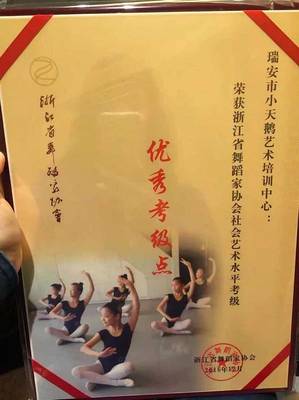 瑞安市小天鹅艺术培训中心：
荣获浙江省舞蹈家协会社会艺术水平考级
优秀考级点
浙江省舞蹈家协会
浙江省舞蹈家协会
12月